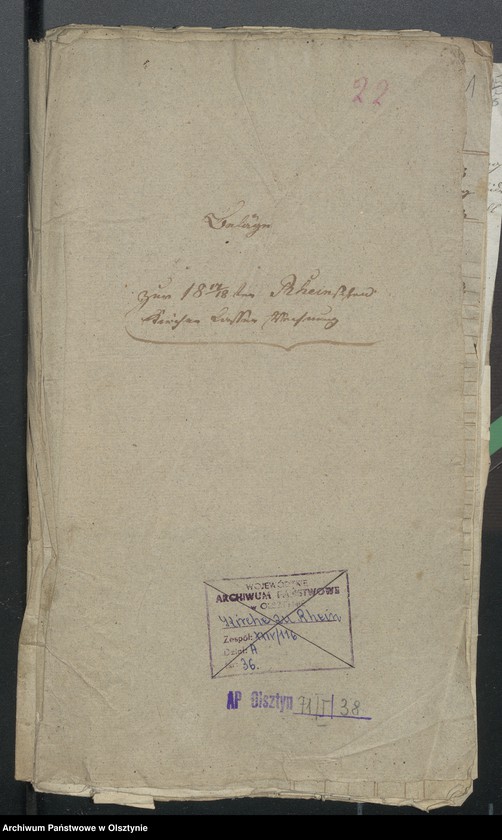 22
1
Beläge
zur 18 17/18 ten Rheinschen
Kirchen Cassen Rechnung
WOJEWÓDZKIE
ARCHIWUM PAŃSTWOWE
w OLSZTYNIE
Kirche zu Rhein
Zespół: XIV/116
Dział: A
Nr: 36.
AP Olsztyn 91/I/38
Archiwum Państwowe w Olsztynie
Archiwum Państwowe w Olsztynie